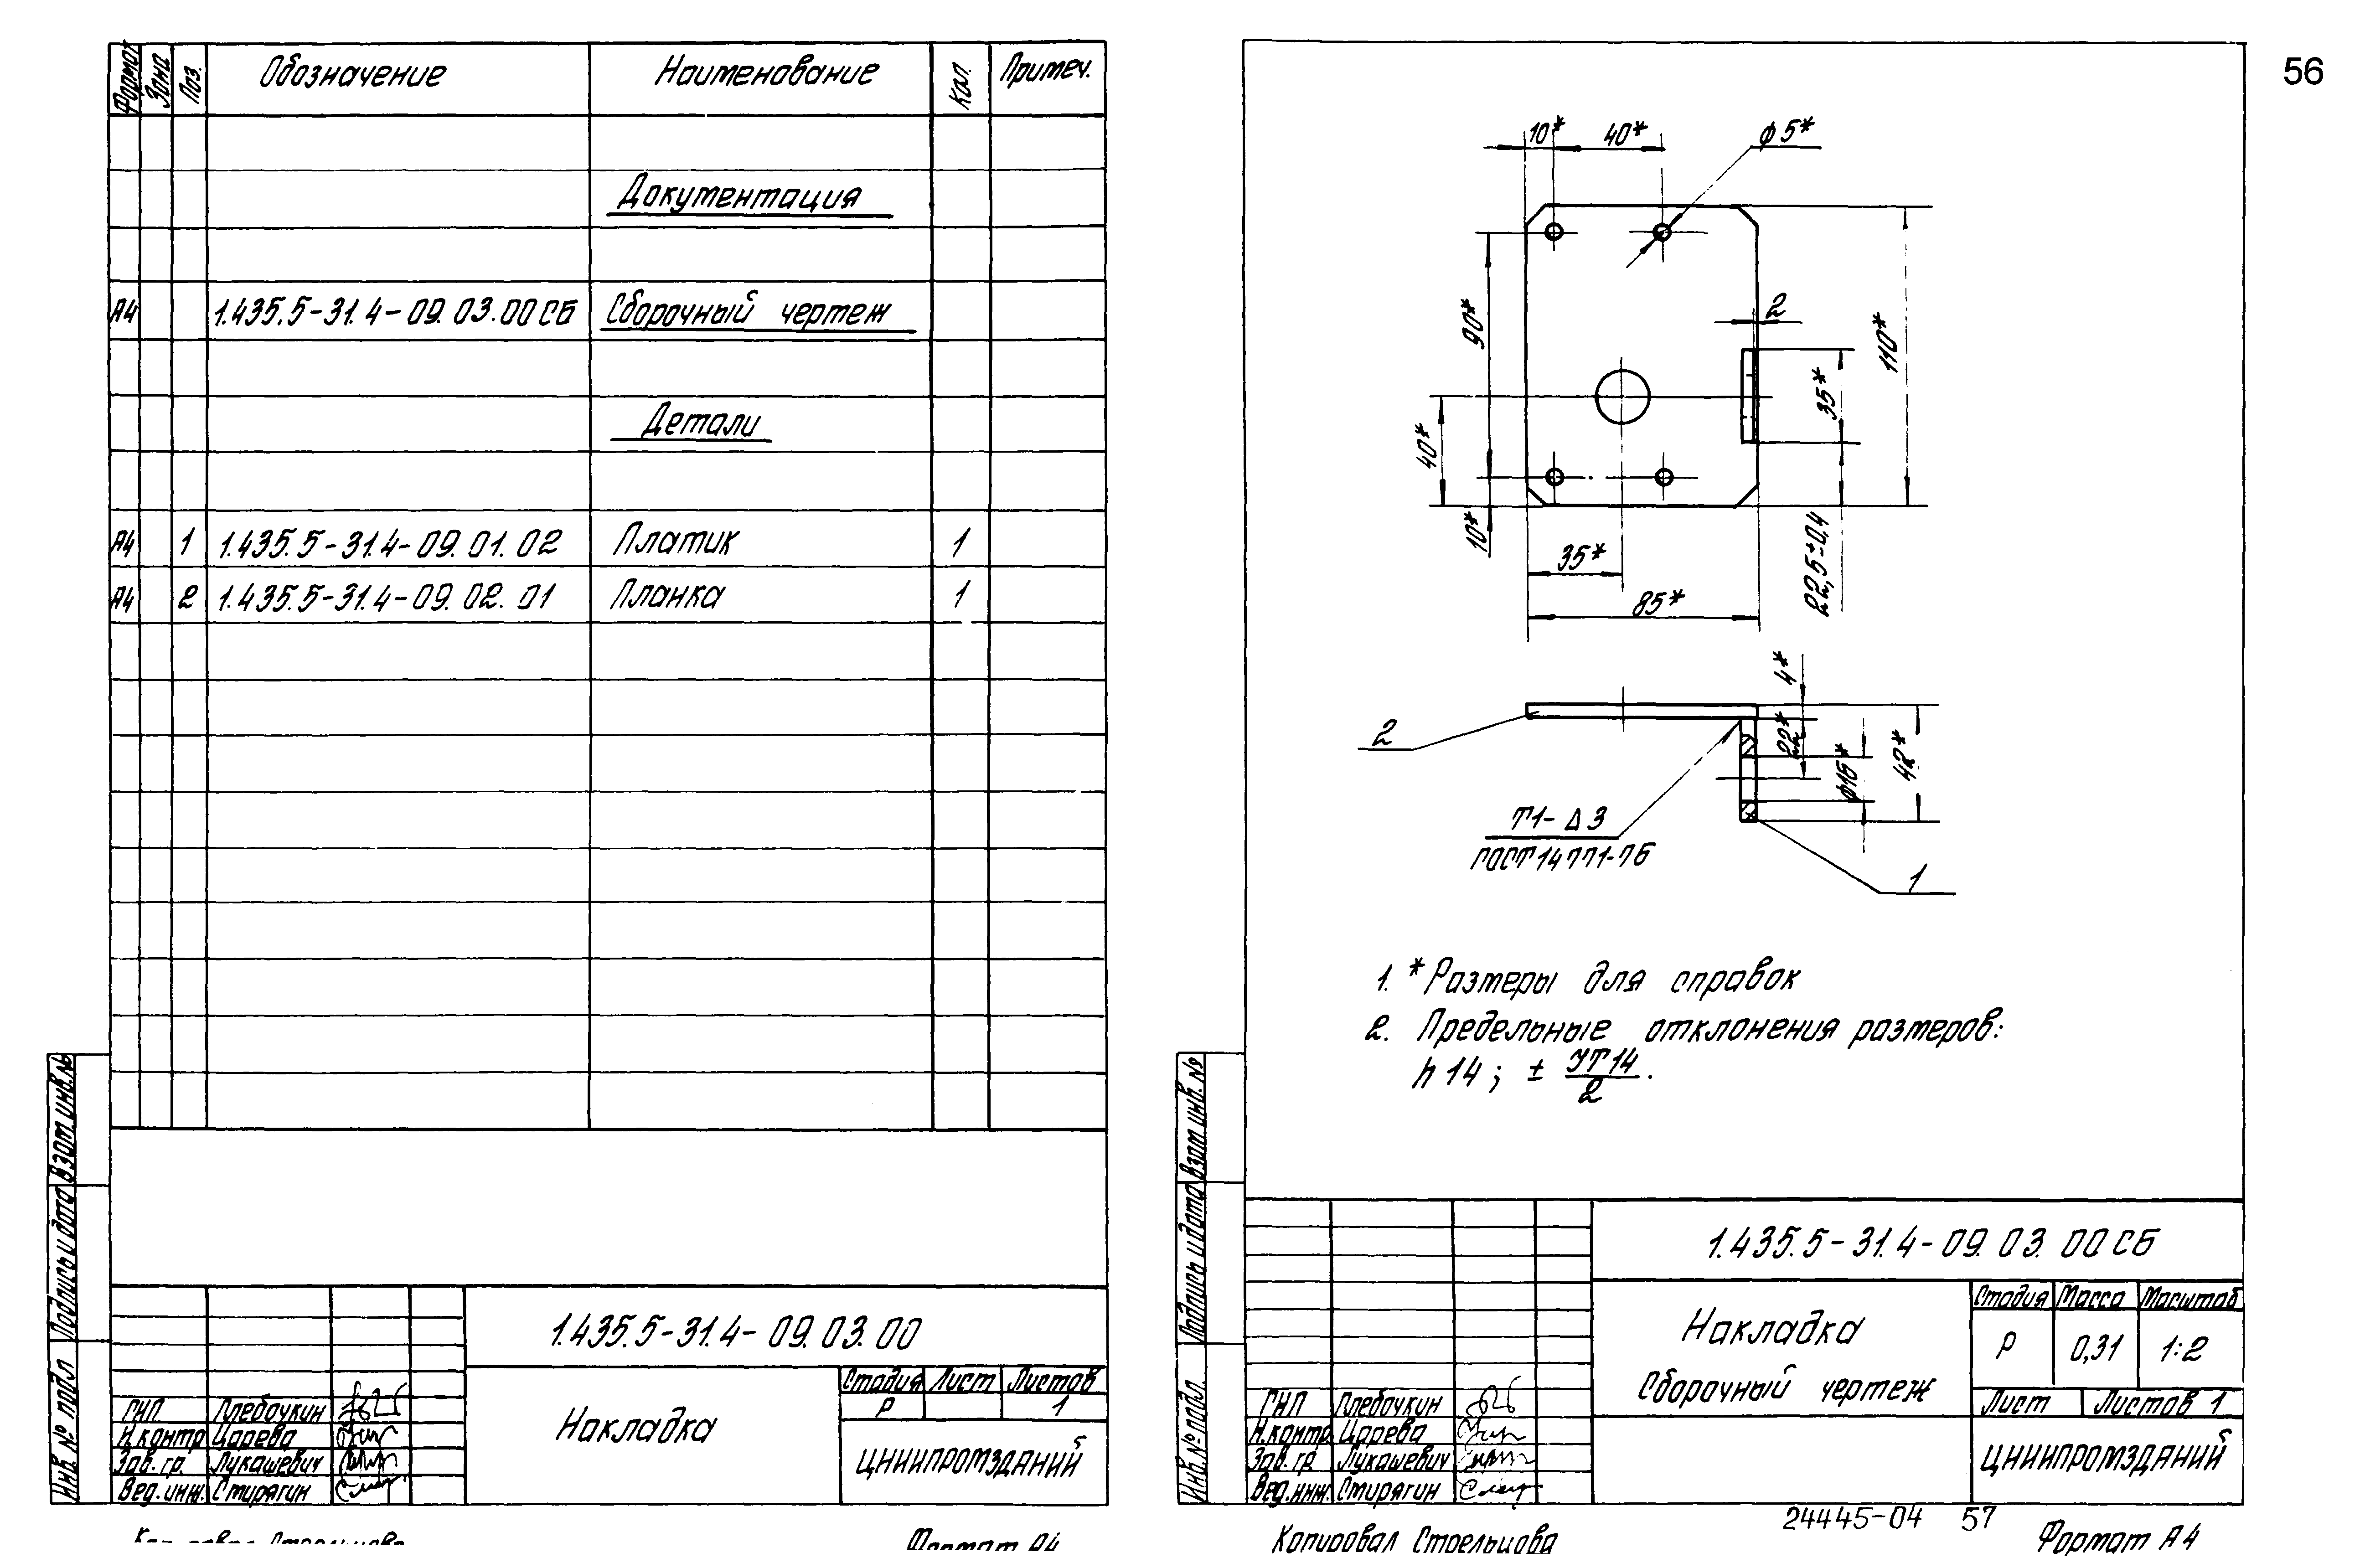 56
Формат Зона Поз. Обозначение Наименование Кол. Примеч.
Документация
А4 1.435.5-31.4-09.03.00СБ Сборочный чертеж
Детали
А4 1 1.435.5-31.4-09.01.02 Платик 1
А4 2 1.435.5-31.4-09.02.01 Планка 1
Взам. инв. №
Подпись и дата
Инв. № подл
1.435.5-31.4-09.03.00
Накладка
Стадия Лист Листов
Р 1
ЦНИИПРОМЗДАНИЙ
ГИП Плебочкин
Н.контр Царева
Зав. гр. Лукашевич
Вед. инж. Стирягин
Формат А4
10* 40* ϕ5*
90*
2
110*
35*
40*
10*
35*
22,5±0,4
85*
4*
2
22*
ϕ16*
42*
Т1-Δ3
ГОСТ 14771-76
1
1. * Размеры для справок
2. Предельные отклонения размеров:
h14; ± JT14/2.
Взам инв. №
Подпись и дата
Инв. № подл.
1.435.5-31.4-09.03.00СБ
Накладка
Сборочный чертеж
Стадия Масса Масштаб
Р 0,31 1:2
Лист Листов 1
ЦНИИПРОМЗДАНИЙ
ГИП Плебочкин
Н.контр. Царева
Зав. гр. Лукашевич
Вед. инж. Стирягин
24445-04 57
Копировал Стрельцова Формат А4